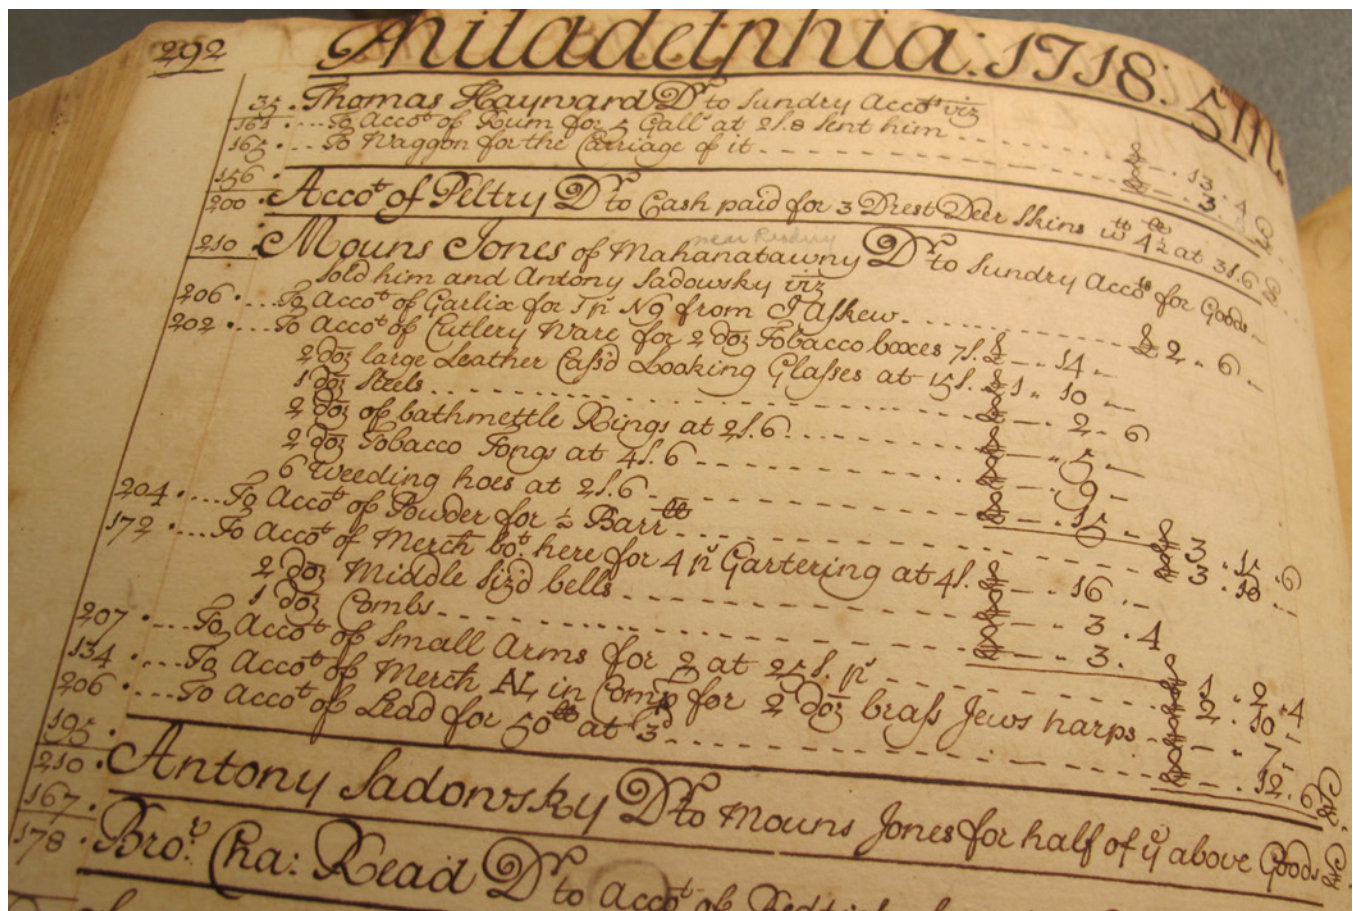 292
Philadelphia: 1718: 5 M
35. Thomas Hayward Dr to Sundry Accots viz
161 .... To Accot of Rum for 5 Galls at 2s.8 sent him £ - . 13 . 4
165 .... To Waggon for the Carriage of it £ - . 3 .
156 .
200 . Accot of Peltry Dr to Cash paid for 3 Drest Deer Skins wt 4½ at 3s.6
near Reading
210 . Mouns Jones of Mahanatawny Dr to Sundry Accots for Goods
sold him and Antony Sadowsky viz
206 .... To Accot of Garlix for 1 ps No 9 from J Askew £ 2 . 6 . -
202 .... To Accot of Cutlery Ware for 2 doz Tobacco boxes 7s. £ - . 14 . -
2 doz large Leather Cas'd Looking Glasses at 15s. £ 1 . 10 . -
1 doz Steels £ - . 2 . 6
2 doz of bathmettle Rings at 2s.6 £ - . 5 . -
2 doz Tobacco Tongs at 4s.6 £ - . 9 -
6 Weeding hoes at 2s.6 £ - . 15 - £ 3 . 15 . 6
204 .... To Accot of Powder for ½ Barrll £ 3 . 10 . -
172 .... To Accot of Merch bot. here for 4 ps Gartering at 4s. £ - . 16 . -
2 doz Middle Siz'd bells £ - . 3 . 4
1 doz Combs £ - . 3 . £ 1 . 2 . 4
207 .... To Accot of Small Arms for 2 at 25s. ps £ 2 . 10 -
134 .... To Accot of Merch AL in Comp for 2 doz brass Jews harps £ - . 7 -
206 .... To Accot of Lead for 50ll at 3d £ - . 12 . 6
195 .
210 . Antony Sadowsky Dr to Mouns Jones for half of ye above Goods
167 .
178 . Brot. Cha: Read Dr to Accot of